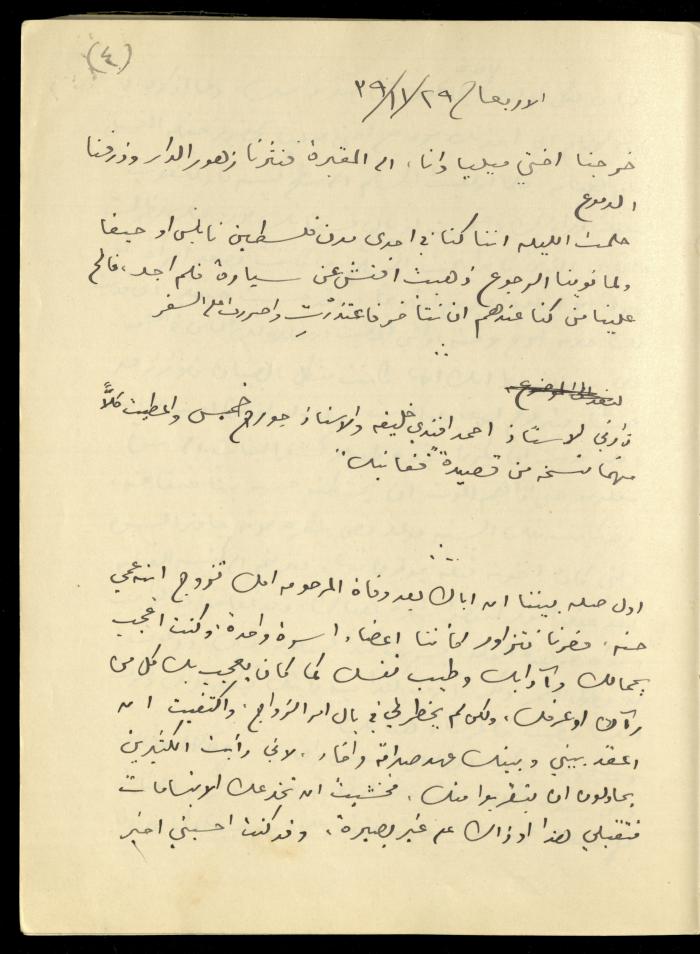 (٤)
الاربعاء ٢٩/١١/٣٩
خرجنا اختي ميليا وانا، الى المقبرة فنثرنا زهور الدار وذرفنا
الدموع
حلمت الليلة اننا كنا في احدى مدن فلسطين نابلس او حيفا
ولما نوينا الرجوع ذهبت افتش عن سيارة فلم اجد، فالح
علينا من كنا عندهم ان نتأخر فاعتذرتِ واصررت على السفر
لنعد الى الموضوع.
زارني الاستاذ احمد افندي خليفه والاستاذ جورج خميس واعطيت كلاًّ
منهما نسخه من قصيدة "فقانبك"
اول صله بيننا ان اباك بعد وفاة المرحومه امك تزوج ابنة عمي
حنه، فصرنا نتزاور كأننا اعضاء اسرة واحدة، وكنت اعجب
بجمالك وآدابك وطيب نفسك كما كان يعجب بك كل من
رآك او عرفك، ولكن لم يخطر لي في بال امر الزواج. واكتفيت ان
اعقد بيني وبينك عهد صداقة واخاء، لاني رأيت الكثيرين
يحاولون ان يتقربوا منك، فخشيت ان تخدعك الابتسامات
فتقبلي هذا او ذاك عن غير بصيرة، وقد كنت احسبني اخبر